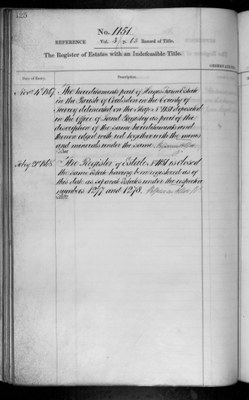 No. 1151.
REFERENCE Vol. 5 p. 83 Record of Title.
The Register of Estates with an Indefeasible Title.
Date of Entry. Description.
Novr 4th 1867 The hereditaments part of Haydons Farm Estate
in the Parish of Coulsdon in the County of
Surrey delineated on the Map No 1151 deposited
in the Office of Land Registry as part of the
description of the same hereditaments and
thereon edged with red together with the mines
and minerals under the same
Feby 21st 1868 The Register of Estate No 1151 is closed
the same Estate having been registered as of
this date as separate Estates under the respective
numbers 1277 and 1278.